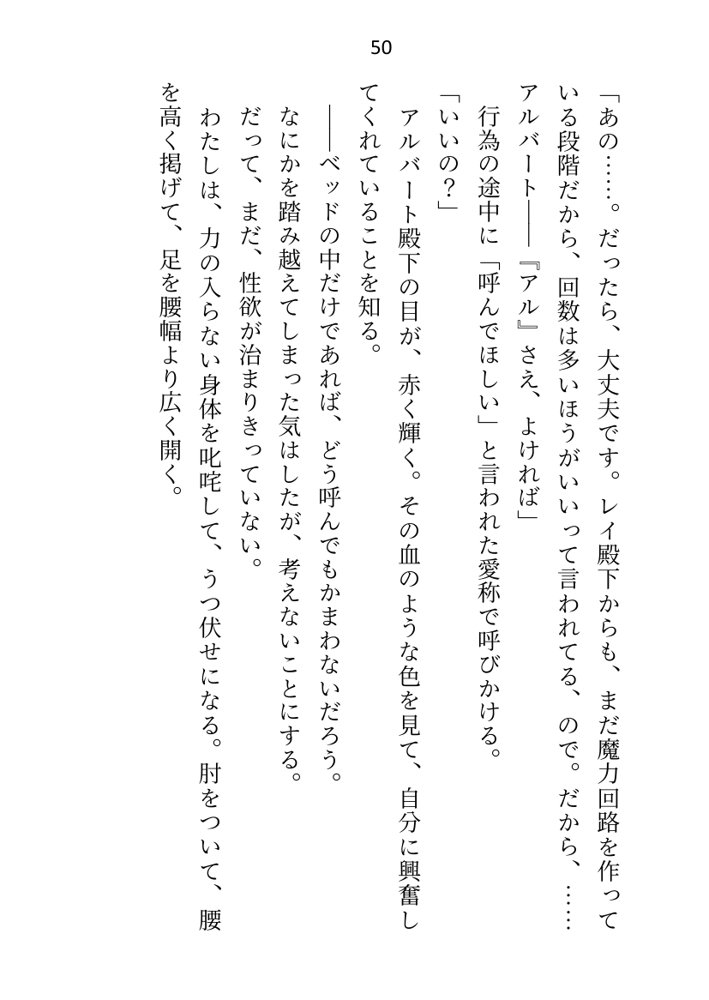 50
「あの……。だったら、大丈夫です。レイ殿下からも、まだ魔力回路を作って
いる段階だから、回数は多いほうがいいって言われてる、ので。だから、……
アルバート――『アル』さえ、よければ」
　行為の途中に「呼んでほしい」と言われた愛称で呼びかける。
「いいの？」
　アルバート殿下の目が、赤く輝く。その血のような色を見て、自分に興奮し
てくれていることを知る。
　――ベッドの中だけであれば、どう呼んでもかまわないだろう。
　なにかを踏み越えてしまった気はしたが、考えないことにする。
　だって、まだ、性欲が治まりきっていない。
　わたしは、力の入らない身体を叱咤して、うつ伏せになる。肘をついて、腰
を高く掲げて、足を腰幅より広く開く。